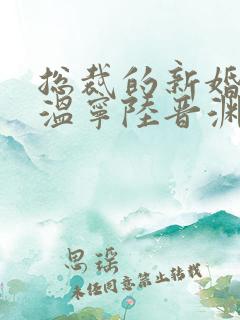 总裁的新婚
温宁陆晋渊
思瑶
未经同意禁止转载